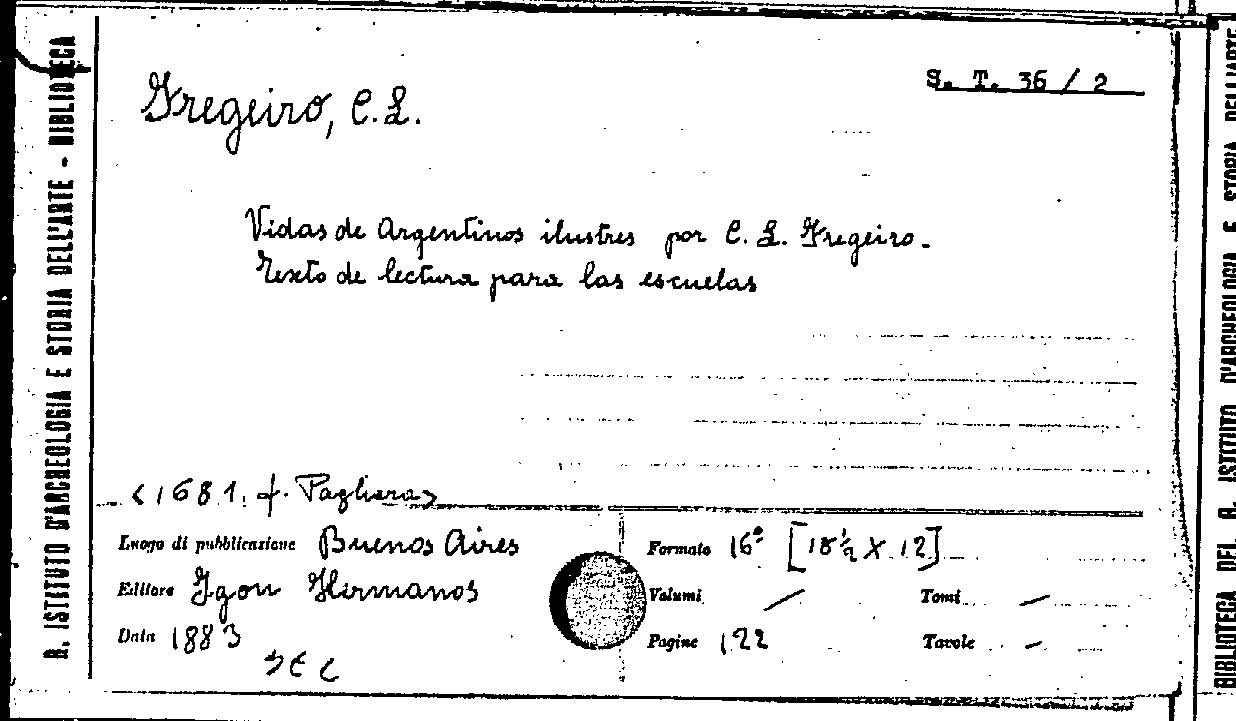 S. T. 36 / 2
Fregeiro, C. L.
Vidas de Argentinos ilustres por C. L. Fregeiro.
Texto de lectura para las escuelas
<1681. f. Pagliara>
Luogo di pubblicazione Buenos Aires
Editore Igon Hermanos
Data 1883
Formato 16° [18½ X 12]
Volumi /
Tomi —
Pagine 122
Tavole —
R. ISTITUTO D'ARCHEOLOGIA E STORIA DELL'ARTE - BIBLIOTECA
BIBLIOTECA DEL R. ISTITUTO D'ARCHEOLOGIA E STORIA DELL'ARTE